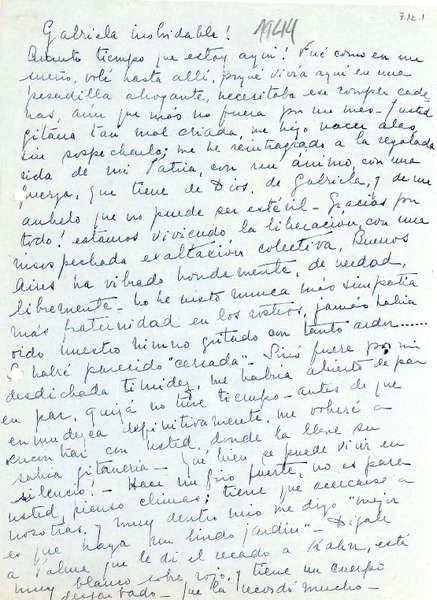 712.1
1944
Gabriela inolvidable!
Cuanto tiempo que estoy aquí! Fué como en un
sueño, volé hasta allí, porqué vivía aquí en una
pesadilla ahogante, necesitaba romper cade-
nas, aún que más no fuera por un mes - Usted
gitana tan mal criada, me hizo nacer alas
sin sospecharlo; me he reintegrado a la regalada
vida de mi Patria, con un ánimo, con una
fuerza, que tiene de Dios, de Gabriela, y de un
anhelo que no puede ser estéril - Gracias por
todo! estamos viviendo la liberación, con una
insospechada exaltación colectiva, Buenos
Aires ha vibrado hondamente, de verdad,
libremente - no he visto nunca más simpatía
más fraternidad en los rostros, jamás había
oido nuestro himno gritado con tanto ardor......
habré parecido "cerrada" - Sinó fuera por mi
desdichada timidez, me habría abierto de par
en par, quizá no tuve tiempo - antes de que
enmudezca definitivamente, me volveré a
encontrar con usted, donde la lleve su
sabia gitanería - Qué bien se puede vivir en
silencio! - Hace un frio fuerte, no es para
usted pienso climas; tiene que acercarse a
nosotras y muy dentro mio me digo "mejor
es que haya un lindo jardín" - Dígale
a Palma que le di el recado a Kahn, está
muy blanco sobre rojo, y tiene un cuerpo
que la recordó mucho -